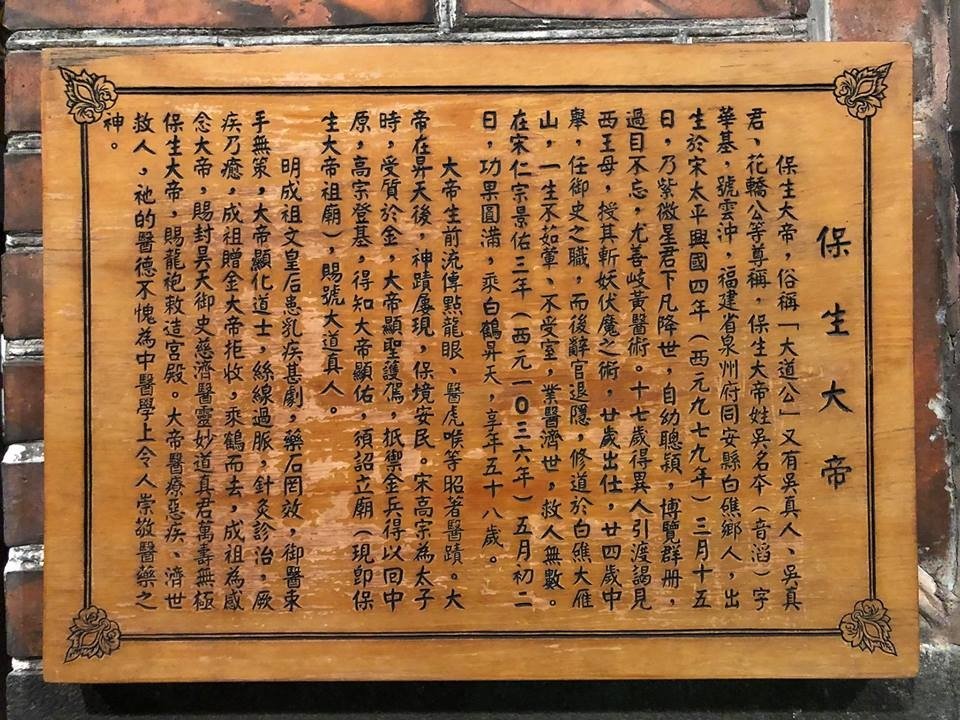 保生大帝
保生大帝，俗稱「大道公」又有吳真人、吳真
君、花轎公等尊稱，保生大帝姓吳名夲（音滔）字
華基，號雲沖，福建省泉州府同安縣白礁鄉人，出
生於宋太平興國四年（西元九七九年）三月十五
日，乃紫微星君下凡降世，自幼聰穎，博覽群册，
過目不忘，尤善岐黃醫術。十七歲得異人引渡謁見
西王母，授其斬妖伏魔之術，廿歲出仕，廿四歲中
舉，任御史之職，而後辭官退隱，修道於白礁大雁
山，一生不茹葷、不受室，業醫濟世，救人無數。
在宋仁宗景佑三年（西元一０三六年）五月初二
日，功果圓滿，乘白鶴昇天，享年五十八歲。
大帝生前流傳點龍眼、醫虎喉等昭著醫蹟。大
帝在昇天後，神蹟屢現，保境安民。宋高宗為太子
時，受質於金，大帝顯聖護駕，抵禦金兵得以回中
原，高宗登基，得知大帝顯佑，須詔立廟（現即保
生大帝祖廟），賜號大道真人。
明成祖文皇后患乳疾甚劇，藥石罔效，御醫束
手無策，大帝顯化道士，絲線過脈，針灸診治，厥
疾乃癒，成祖贈金大帝拒收，乘鶴而去，成祖為感
念大帝，賜封昊天大御史慈濟醫靈妙道真君萬壽無極
保生大帝，賜龍袍敕造宮殿。大帝醫療惡疾、濟世
救人，祂的醫德不愧為中醫學上令人崇敬醫藥之
神。